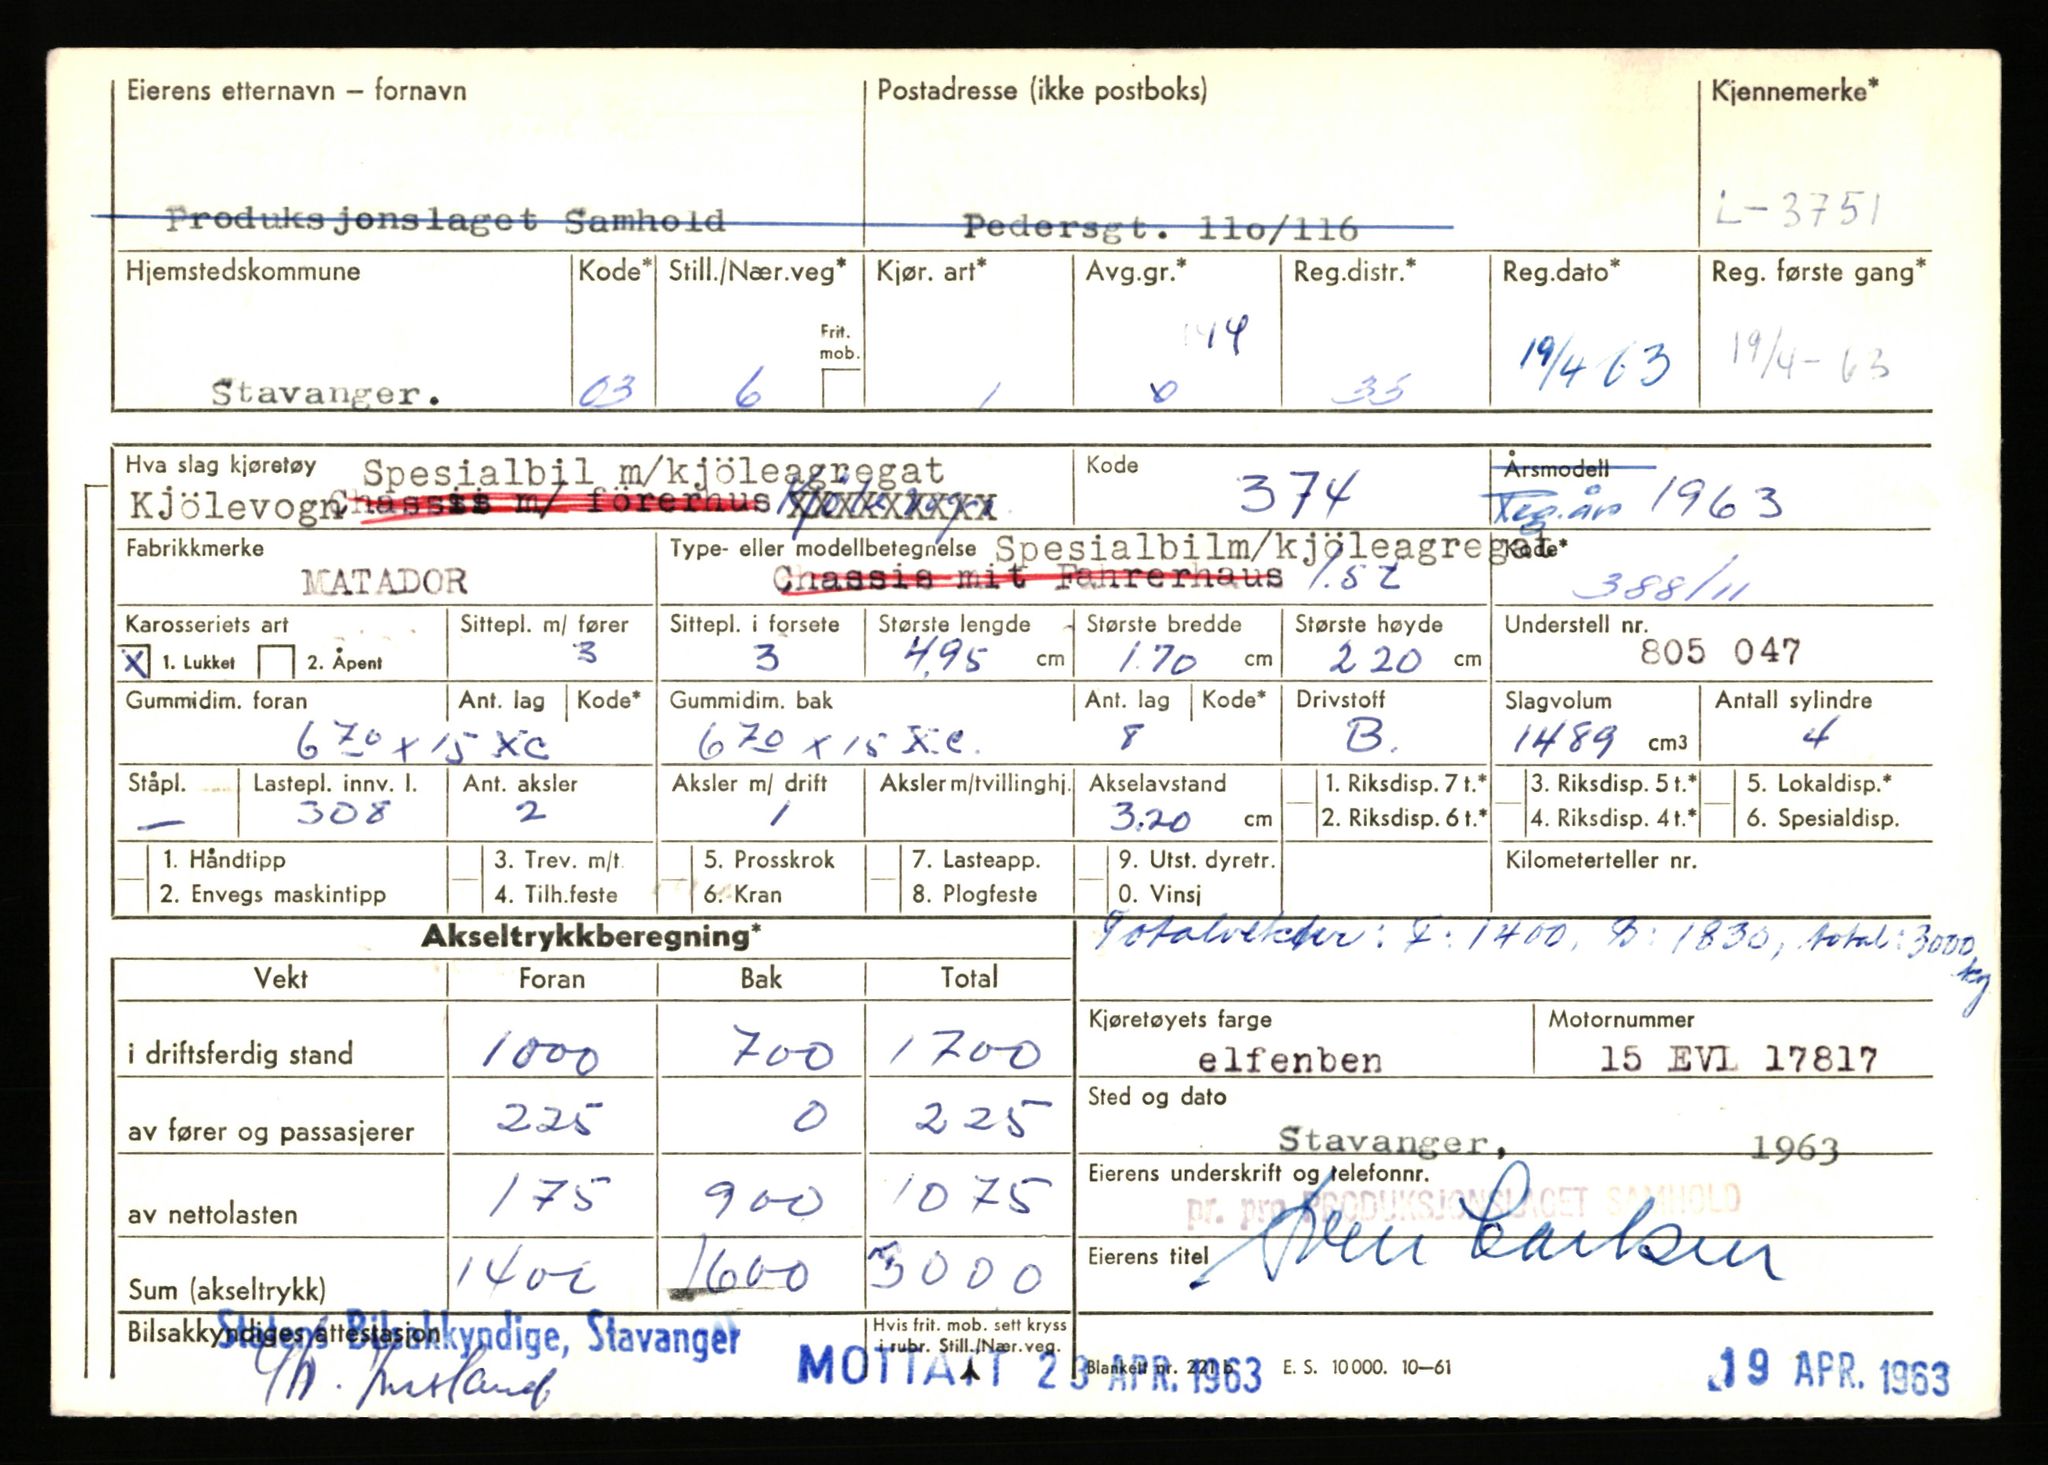 Eierens etternavn – fornavn Postadresse (ikke postboks) Kjennemerke*
Produksjonslaget Samhold Pedersgt. 11o/116 L-3751
Hjemstedskommune Kode* Still./Nær.veg* Kjør. art* Avg.gr.* Reg.distr.* Reg.dato* Reg. første gang*
Frit. mob. 144
Stavanger. 03 6 1 0 33 19/4 63 19/4-63
Hva slag kjøretøy Spesialbil m/kjöleagregat Kode 374 Årsmodell
Kjölevogn Chassis m/ förerhus XXXXXXXXX Reg.år 1963
Fabrikkmerke Type- eller modellbetegnelse Spesialbilm/kjöleagregat Kode*
MATADOR Chassis mit Fahrerhaus 1.5t 388/11
Karosseriets art Sittepl. m/ fører Sittepl. i forsete Største lengde Største bredde Største høyde Understell nr.
X 1. Lukket 2. Åpent 3 3 4,95 cm 1.70 cm 220 cm 805 047
Gummidim. foran Ant. lag Kode* Gummidim. bak Ant. lag Kode* Drivstoff Slagvolum Antall sylindre
670 x 15 XC 670 x 15 X.C. 8 B. 1489 cm3 4
Ståpl. Lastepl. innv. l. Ant. aksler Aksler m/ drift Aksler m/tvillinghj. Akselavstand 1. Riksdisp. 7 t.* 3. Riksdisp. 5 t.* 5. Lokaldisp.*
— 308 2 1 3.20 cm 2. Riksdisp. 6 t.* 4. Riksdisp. 4 t.* 6. Spesialdisp.
1. Håndtipp 3. Trev. m/t 5. Prosskrok 7. Lasteapp. 9. Utst. dyretr. Kilometerteller nr.
2. Envegs maskintipp 4. Tilh.feste 6. Kran 8. Plogfeste 0. Vinsj
Akseltrykkberegning* Totalvekter: F: 1400, B: 1830, total: 3000 kg
Vekt Foran Bak Total
Kjøretøyets farge Motornummer
i driftsferdig stand 1000 700 1700 elfenben 15 EVL 17817
Sted og dato
av fører og passasjerer 225 0 225 Stavanger, 1963
Eierens underskrift og telefonnr.
av nettolasten 175 900 1075 pr. pro PRODUKSJONSLAGET SAMHOLD
Eierens titel
Sum (akseltrykk) 1400 1600 3000
Bilsakkyndiges attestasjon Statens Bilsakkyndige, Stavanger Hvis frit. mob. sett kryss
i rubr. Still./Nær.veg.
MOTTATT 23 APR. 1963 Blankett nr. 221 b E. S. 10000. 10–61 19 APR. 1963